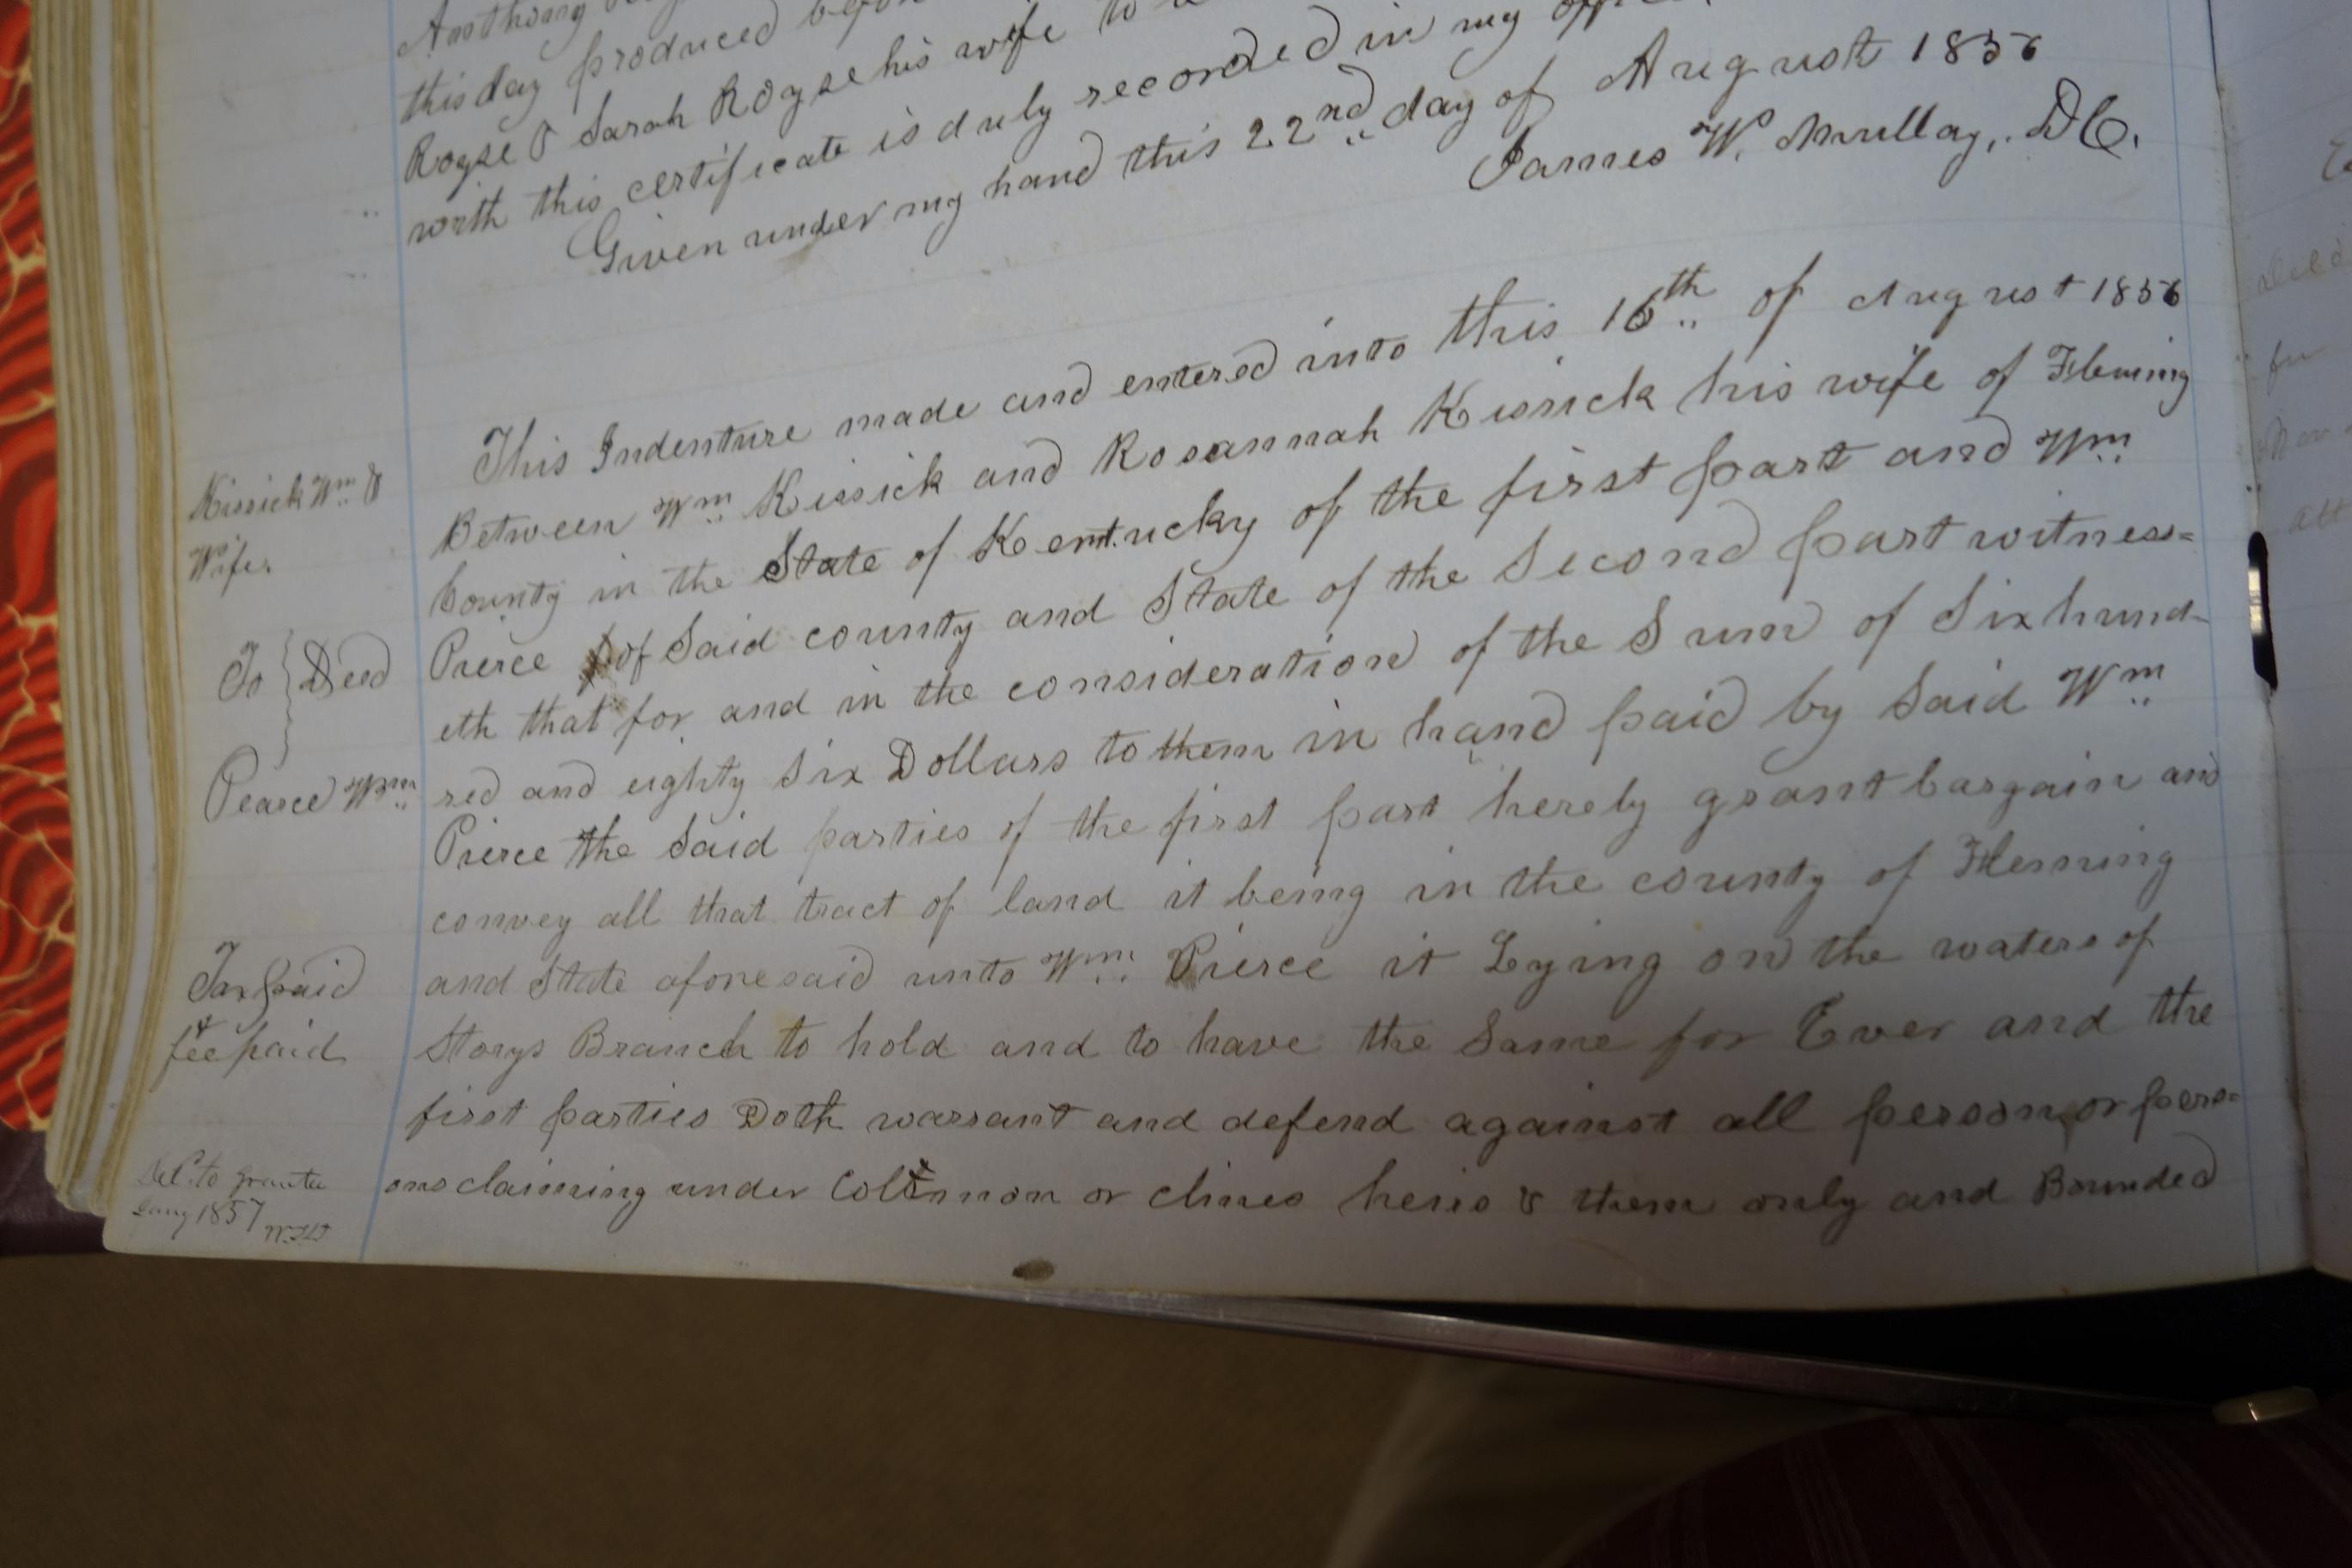 Anthony
this day produced before
Royse & Sarah Royse his wife to
with this certificate is duly recorded in my office
Given under my hand this 22nd day of August 1856
James W. Mullay, D.C.
This Indenture made and entered into this 16th of August 1856
Kissick Wm &
Wife.
Between Wm Kissick and Rosannah Kissick his wife of Fleming
County in the State of Kentucky of the first part and Wm
To } Deed
Pierce of Said county and State of the Second part witness=
eth that for and in the consideration of the Sum of Six hund-
Pearce Wm
red and eighty Six Dollars to them in hand paid by Said Wm
Pierce the Said parties of the first part hereby grant bargain and
convey all that tract of land it being in the county of Fleming
Tax paid
& fee paid
and State aforesaid unto Wm Pierce it Lying on the waters of
Storys Branch to hold and to have the Same for Ever and the
first parties Doth warrant and defend against all person or pers=
Del. to grantee
Jany 1857
ons claiming under or climes heirs & them only and Bounded